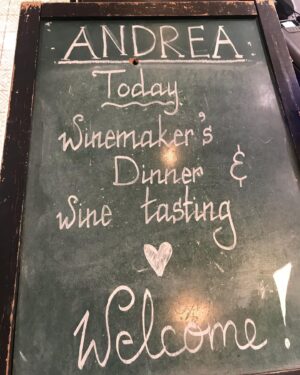 ANDREA
Today
Winemaker's
Dinner &
wine tasting
Welcome!